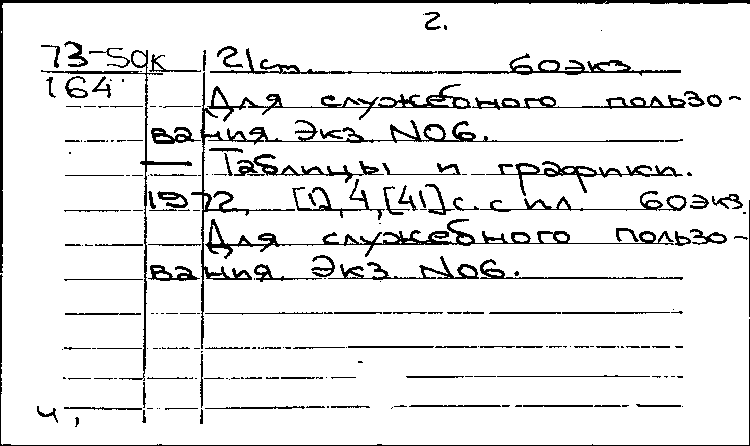 2.
73-50дк 21 ст. 60экз.
164
Для служебного пользо-
вания. Экз. №06.
— Таблицы и графики.
1972, [1], 4, [41] с. с ил. 60экз.
Для служебного пользо-
вания. Экз. №06.
ч,